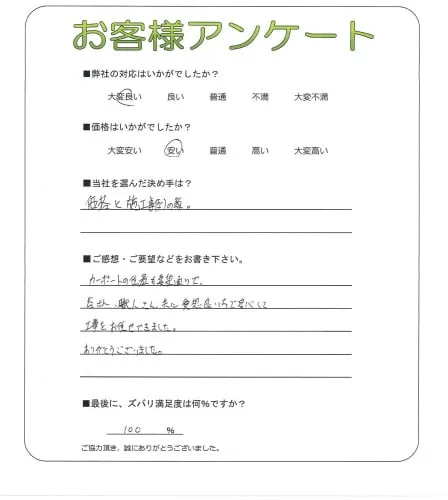 お客様アンケート
■弊社の対応はいかがでしたか?
大変良い 良い 普通 不満 大変不満
■価格はいかがでしたか?
大変安い 安い 普通 高い 大変高い
■当社を選んだ決め手は?
価格と施工事例の数。
■ご感想・ご要望などをお書き下さい。
カーポートの位置も希望通りで、
職人さん 良いので安心して
工事をお任せできました。
ありがとうございました。
■最後に、ズバリ満足度は何%ですか?
100 %
ご協力頂き、誠にありがとうございました。